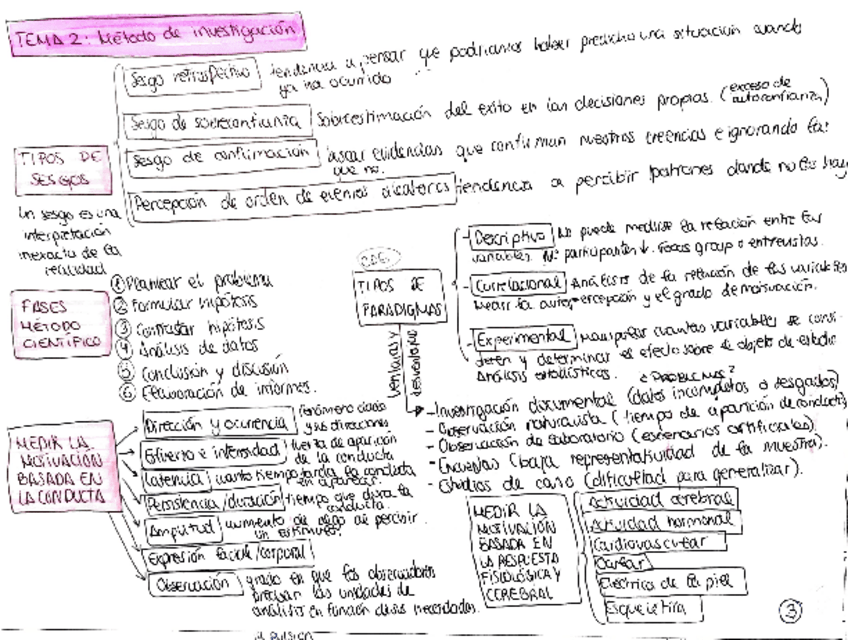 TEMA 2: Método de investigación
Sesgo retrospectivo tendencia a pensar que podríamos haber predicho una situación cuando
ya ha ocurrido
Sesgo de sobreconfianza Sobrestimación del éxito en las decisiones propias. (exceso de
autoconfianza)
TIPOS DE
SESGOS
Sesgo de confirmación buscar evidencias que confirman nuestras creencias e ignorando las
que no.
Percepción de orden de eventos aleatorios tendencia a percibir patrones donde no los hay
Un sesgo es una
interpretación
inexacta de la
realidad
FASES
MÉTODO
CIENTÍFICO
① Plantear el problema
② Formular hipótesis
③ Contrastar hipótesis
④ Análisis de datos
⑤ Conclusión y discusión
⑥ Elaboración de informes.
TIPOS DE
PARADIGMAS
Descriptivo No puede medirse la relación entre las
variables. Nº participantes ↓. Focus group o entrevistas.
Correlacional Análisis de la relación de las variables
Medir la autopercepción y el grado de motivación.
Experimental Manipular cuantas variables se consi-
deren y determinar el efecto sobre el objeto de estudio
Análisis estadísticos.
ventajas y
desventajas
¿PROBLEMAS?
- Investigación documental (datos incompletos o sesgados)
- Observación naturalista (tiempo de aparición de conducta)
- Observación de laboratorio (escenarios artificiales).
- Encuestas (baja representatividad de la muestra).
- Estudios de caso (dificultad para generalizar).
MEDIR LA
MOTIVACIÓN
BASADA EN
LA CONDUCTA
Dirección y ocurrencia fenómeno
y sus direcciones
Esfuerzo e intensidad fuerza de aparición
de la conducta
Latencia cuanto tiempo tarda la conducta
en aparecer.
Persistencia/duración tiempo que dura la
conducta.
Amplitud aumento de algo al percibir
un estímulo.
Expresión facial/corporal
Observación grado en que los observadores
precisan las unidades de
análisis en función de sus necesidades.
MEDIR LA
MOTIVACIÓN
BASADA EN
LA RESPUESTA
FISIOLÓGICA Y
CEREBRAL
Actividad cerebral
Actividad hormonal
Cardiovascular
Ocular
Eléctrica de la piel
Esquelética
③
Pulsión